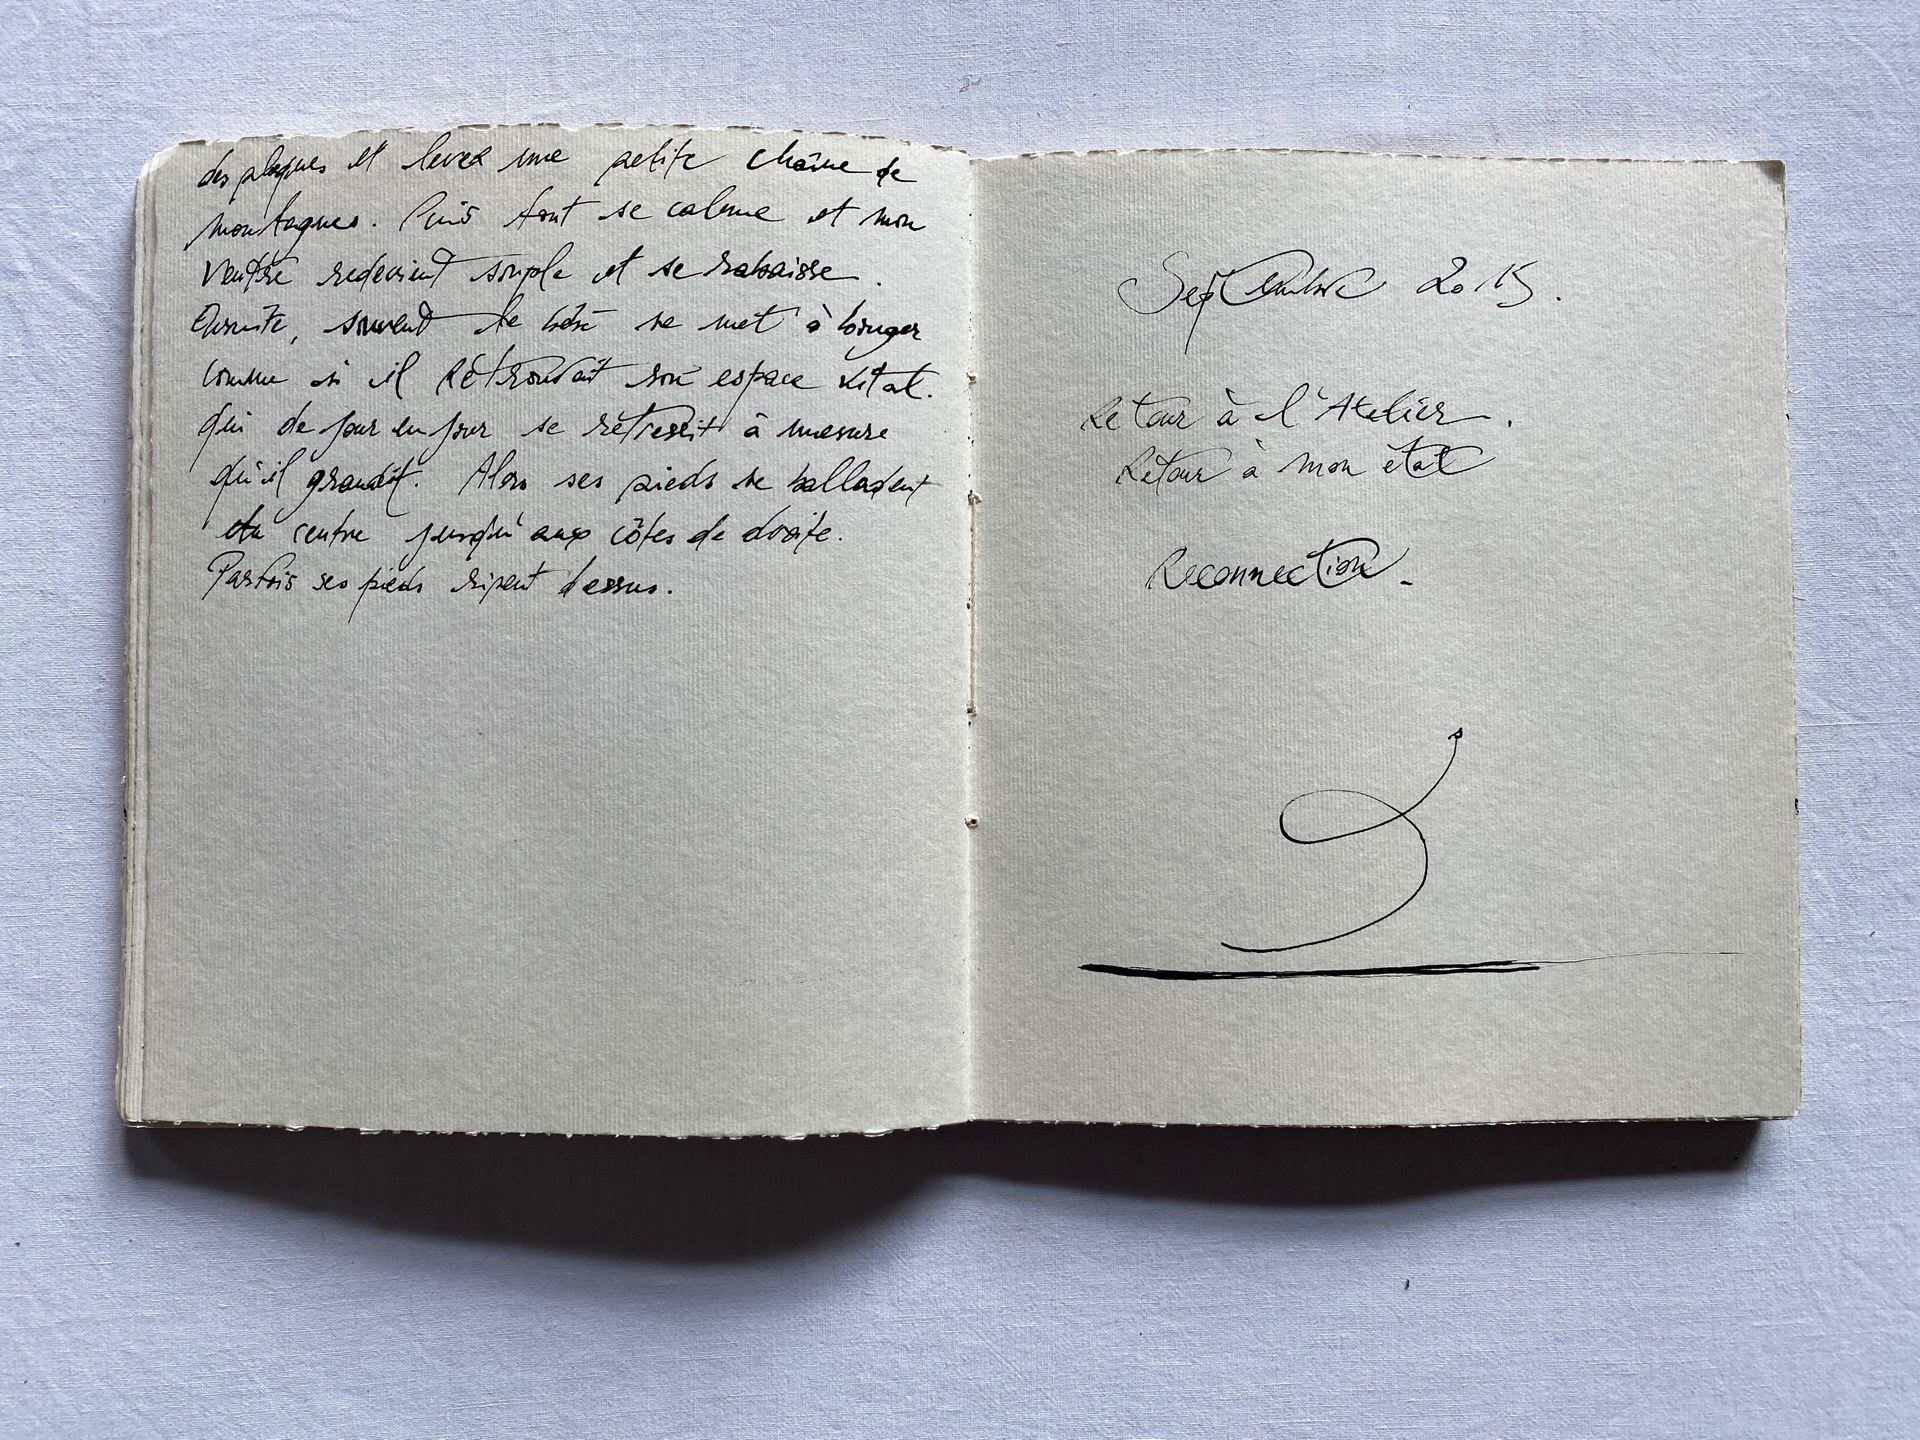 des plaques et lever une petite chaîne de
montagnes. Puis tout se calme et mon
ventre redevient souple et se rabaisse.
Ensuite, souvent le bébé se met à bouger
comme si il retrouvait son espace vital.
qui de jour en jour se rétrécit à mesure
qu'il grandit. Alors ses pieds se balladent
du centre jusqu'aux côtes de droite.
Parfois ses pieds ripent dessus.
Septembre 2015.
Retour à l'Atelier.
Retour à mon état
Reconnection.